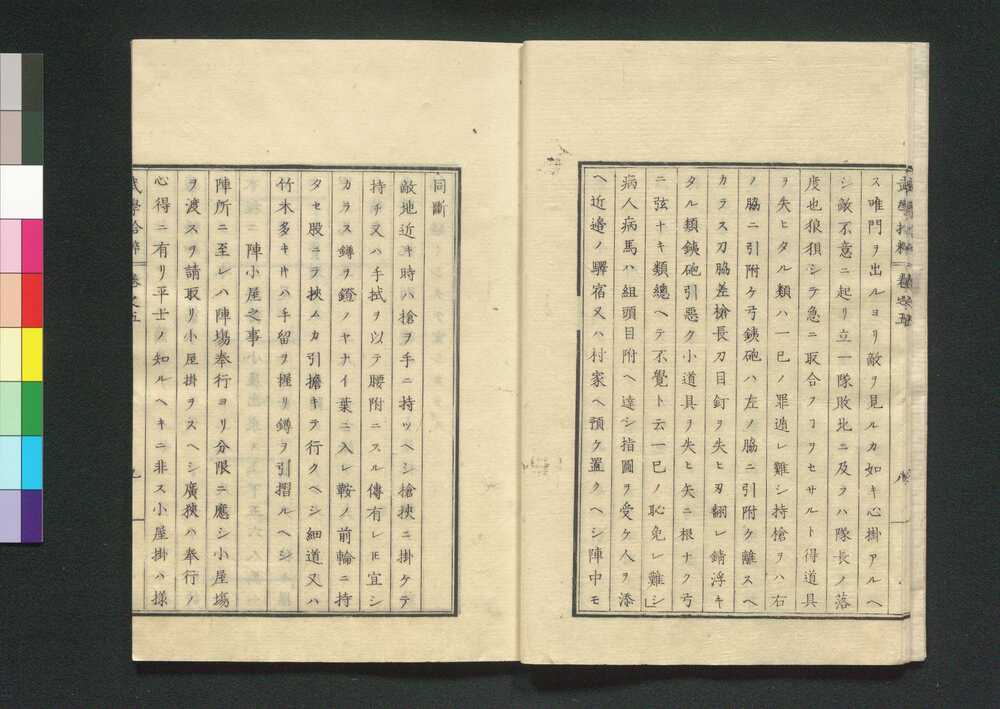 武學拾粹 卷之五
ス唯門ヲ出ルヨリ敵ヲ見ルカ如キ心掛アルヘ
シ敵不意ニ起リ立一隊敗北ニ及フハ隊長ノ落
度也狼狽シテ急ニ取合フヿヲセサルト得道具
ヲ失ヒタル類ハ一已ノ罪遁レ難シ持槍ヲハ右
ノ脇ニ引附ケ弓銕砲ハ左ノ脇ニ引附ケ離スヘ
カラス刀脇差槍長刀目釘ヲ失ヒ刃翻レ錆浮キ
タル類銕砲引惡ク小道具ヲ失ヒ矢ニ根ナク弓
ニ弦ナキ類總ヘテ不覺ト云一已ノ恥免レ難シ」
病人病馬ハ組頭目附ヘ達シ指圖ヲ受ケ人ヲ添
ヘ近邉ノ驛宿又ハ村家ヘ預ケ置クヘシ陣中モ
同斷
敵地近キ時ハ槍ヲ手ニ持ツヘシ槍挾ニ掛ケテ
持チ又ハ手拭ヲ以テ腰附ニスル傳有レ𪜈宜シ
カラス鐏ヲ鐙ノヤナイ葉ニ入レ鞍ノ前輪ニ持
タセ股ニテ挾ムカ引擔キテ行クヘシ細道又ハ
竹木多キ𪜈ハ手留ヲ握リ鐏ヲ引摺ルヘシ
陣小屋之事
陣所ニ至レハ陣塲奉行ヨリ分限ニ應シ小屋塲
ヲ渡スヲ請取リ小屋掛ヲスヘシ廣狹ハ奉行ノ
心得ニ有リ平士ノ知ルヘキニ非ス小屋掛ハ樣
武學拾粹 卷之五 九